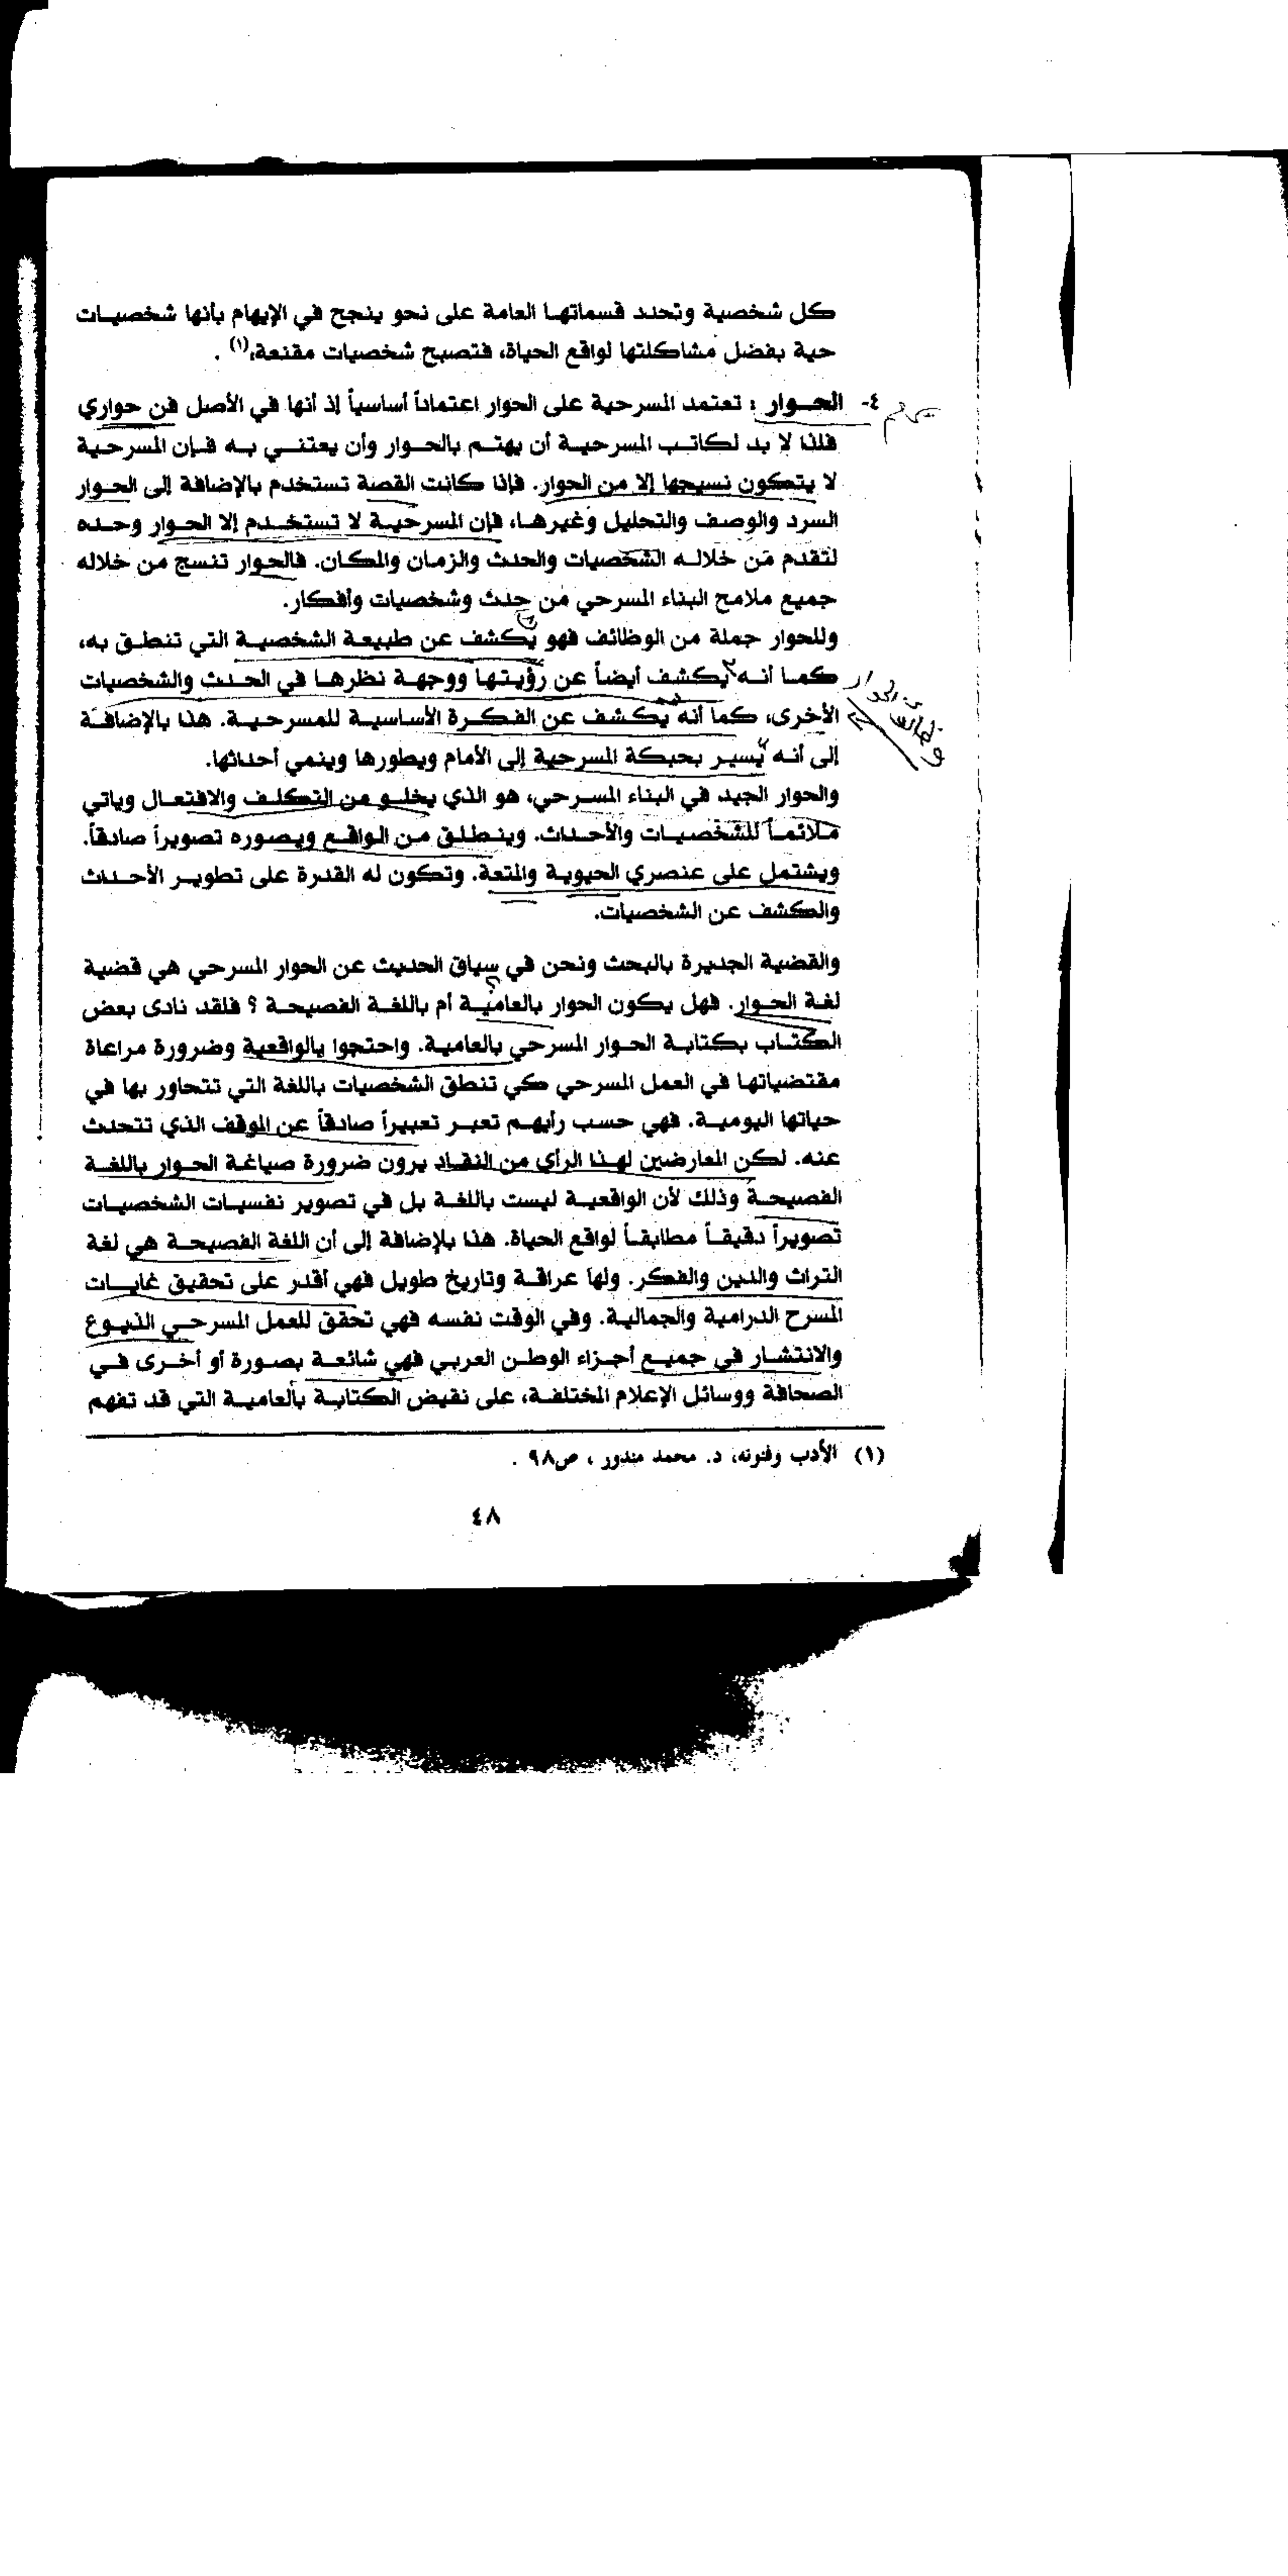 كل شخصية وتحدد قسماتها العامة على نحو ينجح في الإيهام بأنها شخصيات
حية بفضل مشاكلتها لواقع الحياة، فتصبح شخصيات مقنعة،(١) .
٤- الحوار : تعتمد المسرحية على الحوار اعتماداً أساسياً إذ أنها في الأصل فن حواري
فلذا لا بد لكاتب المسرحية أن يهتم بالحوار وأن يعتني به فإن المسرحية
لا يتكون نسيجها إلا من الحوار. فإذا كانت القصة تستخدم بالإضافة إلى الحوار
السرد والوصف والتحليل وغيرها، فإن المسرحية لا تستخدم إلا الحوار وحده
لتقدم من خلاله الشخصيات والحدث والزمان والمكان. فالحوار تنسج من خلاله
جميع ملامح البناء المسرحي من حدث وشخصيات وأفكار.
وللحوار جملة من الوظائف فهو يكشف عن طبيعة الشخصية التي تنطق به،
كما أنه يكشف أيضاً عن رؤيتها ووجهة نظرها في الحدث والشخصيات
وظائف الحوار
الأخرى، كما أنه يكشف عن الفكرة الأساسية للمسرحية. هذا بالإضافة
إلى أنه يسير بحبكة المسرحية إلى الأمام ويطورها وينمي أحداثها.
والحوار الجيد في البناء المسرحي، هو الذي يخلو من التكلف والافتعال ويأتي
ملائماً للشخصيات والأحداث. وينطلق من الواقع ويصوره تصويراً صادقاً.
ويشتمل على عنصري الحيوية والمتعة. وتكون له القدرة على تطوير الأحداث
والكشف عن الشخصيات.
والقضية الجديرة بالبحث ونحن في سياق الحديث عن الحوار المسرحي هي قضية
لغة الحوار. فهل يكون الحوار بالعامية أم باللغة الفصيحة ؟ فلقد نادى بعض
الكتاب بكتابة الحوار المسرحي بالعامية. واحتجوا بالواقعية وضرورة مراعاة
مقتضياتها في العمل المسرحي كي تنطق الشخصيات باللغة التي تتحاور بها في
حياتها اليومية. فهي حسب رأيهم تعبر تعبيراً صادقاً عن الموقف الذي تتحدث
عنه. لكن المعارضين لهذا الرأي من النقاد يرون ضرورة صياغة الحوار باللغة
الفصيحة وذلك لأن الواقعية ليست باللغة بل في تصوير نفسيات الشخصيات
تصويراً دقيقاً مطابقاً لواقع الحياة. هذا بلإضافة إلى أن اللغة الفصيحة هي لغة
التراث والدين والفكر. ولها عراقة وتاريخ طويل فهي أقدر على تحقيق غايات
المسرح الدرامية والجمالية. وفي الوقت نفسه فهي تحقق للعمل المسرحي الذيوع
والانتشار في جميع أجزاء الوطن العربي فهي شائعة بصورة أو أخرى في
الصحافة ووسائل الإعلام المختلفة، على نقيض الكتابة بالعامية التي قد تفهم
(١) الأدب وفنونه، د. محمد مندور ، ص٩٨ .
٤٨